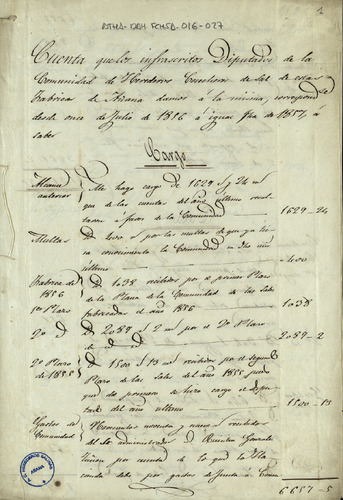 ATHA-DAH-FCHSA-016-027
1
Cuenta que los infrascritos Diputados de la
Comunidad de Herederos Caseros de Sal de esta
Fabrica de Añana damos á la misma, correspond.te
desde once de Julio de 1856 á igual fha de 1857, á
saber
Cargo
Alcance anterior
Me hago cargo de 1629 y 24 m
que de las cuentas del año ultimo resul
taron á favor de la Comunidad
1629-24
Multas
De 400 por las multas de que ya tie
ne conocimiento la Comunidad en dho año
ultimo
400
Fabrica de 1856
1er Plazo
De 1038 recibidos por el primer Plazo
de la Plana de la Comunidad de las Sales
fabricadas el año 1856
1038
2º id
De 2089 2 ms por el 2º Plazo
de id id
2089-2
2º Plazo de 1855
De 1500 13 ms recibidos por el segundo
Plazo de las Sales del año 1855 puesto
que del primero se hizo cargo el Dipu
tado del año ultimo
1500-13
Gastos de Comunidad
Novecientos noventa y nueve recibidos
del Sr administrador D. Quintin Gonzalez
por cuenta de lo que la Ha
cienda debe por gastos de Junta á Comu
6657-5
AÑANA